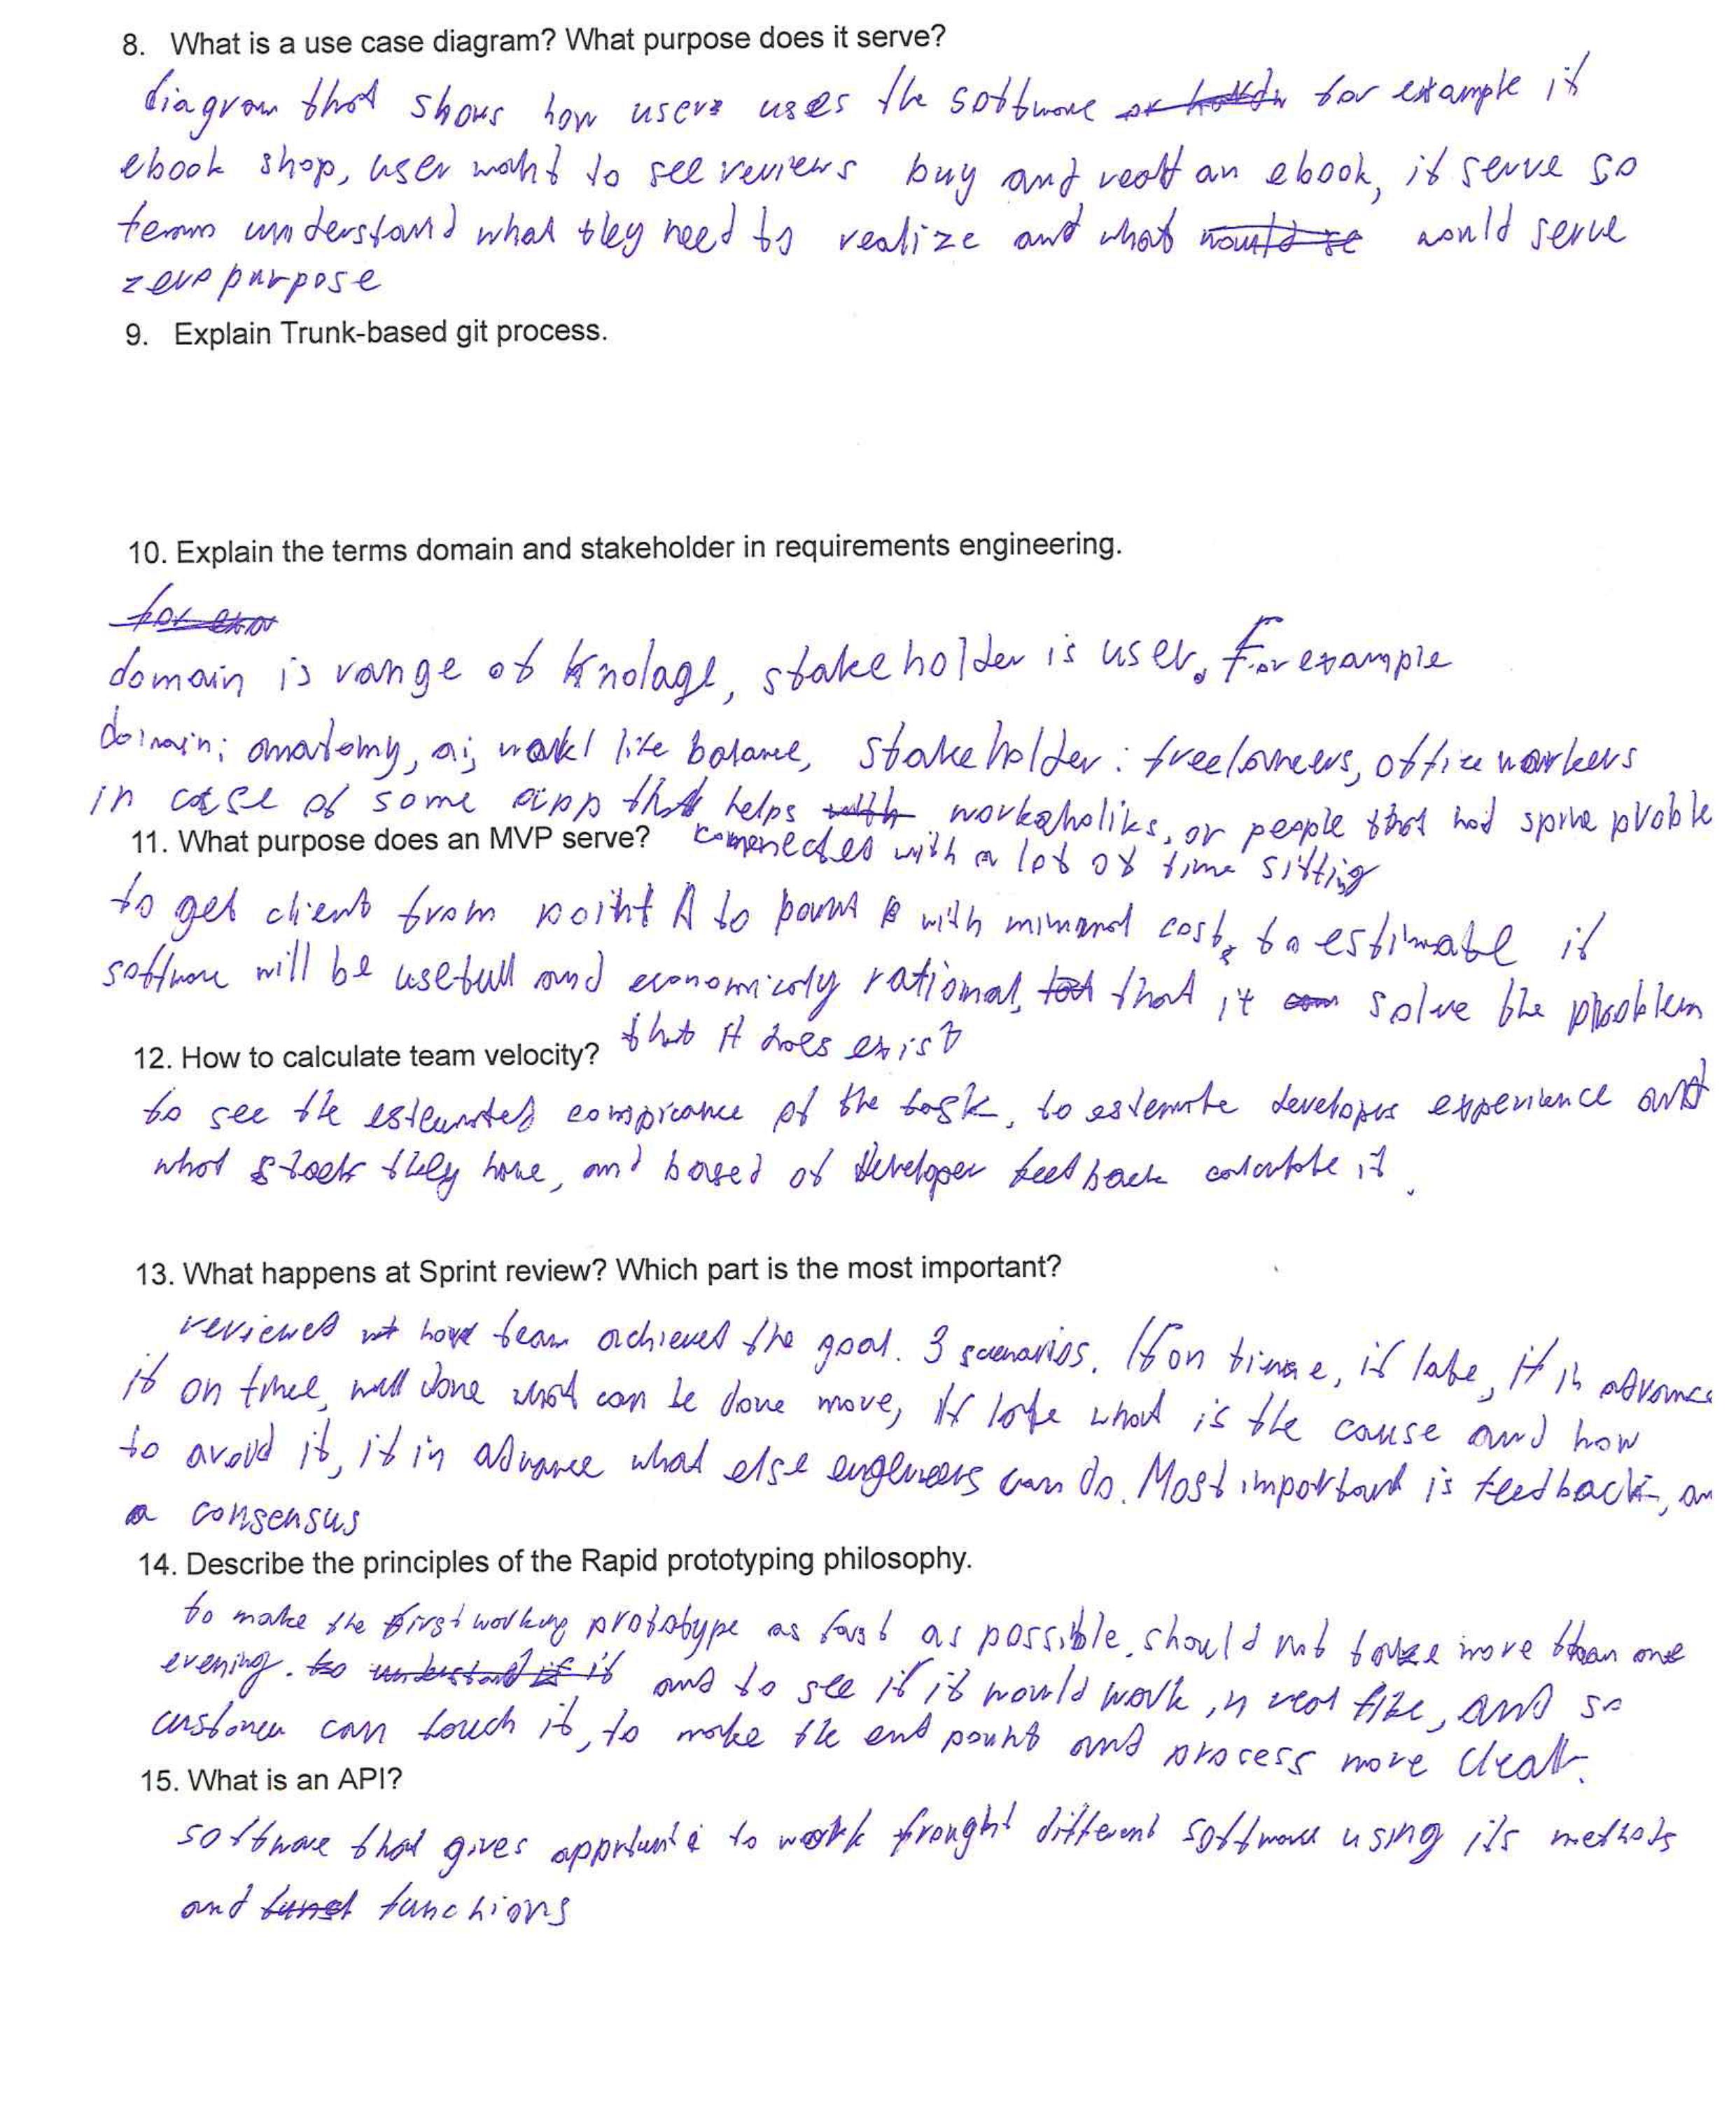 8. What is a use case diagram? What purpose does it serve?
diagram that shows how users uses the software for example if
ebook shop, user want to see reviews buy and read an ebook, it serve so
team understand what they need to realize and what would serve
zero purpose
9. Explain Trunk-based git process.
10. Explain the terms domain and stakeholder in requirements engineering.
domain is range of knolage, stakeholder is user. For example
domain: anatomy, ai, work life balance, stakeholder: freelancers, office workers
in case of some app that helps workaholiks, or people that had spine proble
11. What purpose does an MVP serve?
with a lot of time sitting
to get client from point A to point B with minimal cost, to estimate if
software will be usefull and economicly rational, that it solve the problem
that it does exist
12. How to calculate team velocity?
to see the of the task, to estemate developer experience and
what they have, and based of developer feedback calculate it.
13. What happens at Sprint review? Which part is the most important?
reviewed team achieved the goal. 3 scenarios. If on time, if late, if in advance
if on time, well done what can be done more, if late what is the cause and how
to avoid it, if in advance what else engeneers can do. Most important is feedback, an
a consensus
14. Describe the principles of the Rapid prototyping philosophy.
to make the first working prototype as fast as possible. should not take more than one
evening. and to see if it would work in real life, and so
customer can touch it, to make the end point and process more clear.
15. What is an API?
software that gives to work different software using its methods
and functions